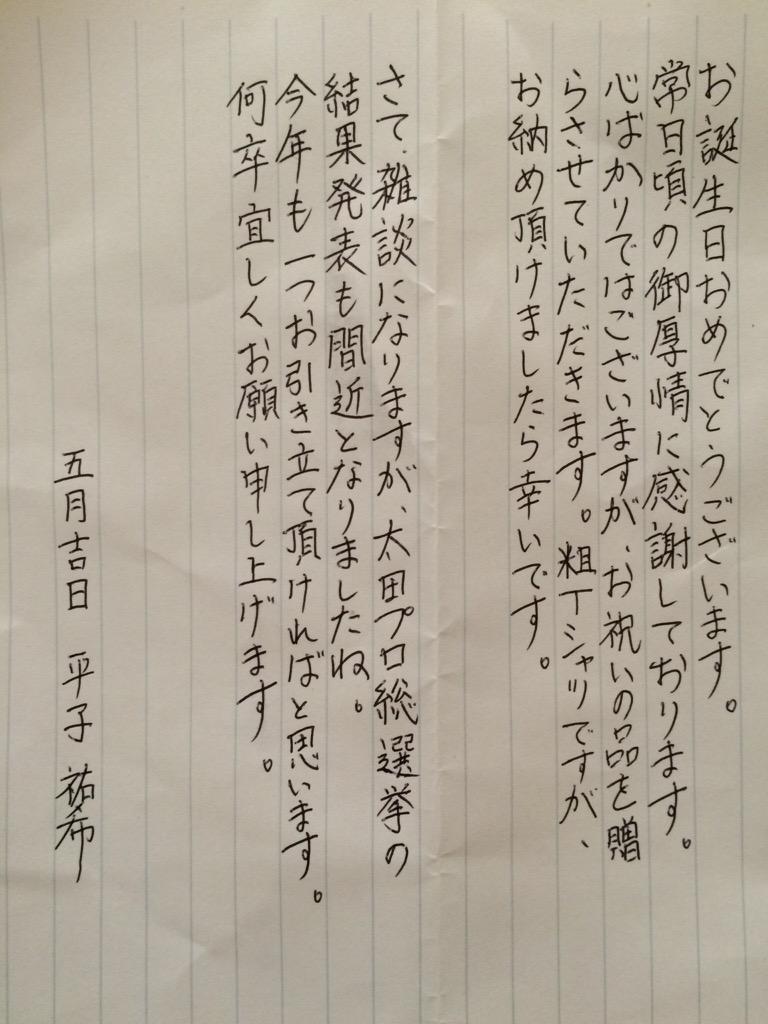 お誕生日おめでとうございます。
常日頃の御厚情に感謝しております。
心ばかりではございますが、お祝いの品を贈
らさせていただきます。粗Tシャツですが、
お納め頂けましたら幸いです。
さて、雑談になりますが、太田プロ総選挙の
結果発表も間近となりましたね。
今年も一つお引き立て頂ければと思います。
何卒宜しくお願い申し上げます。
五月吉日 平子 祐希